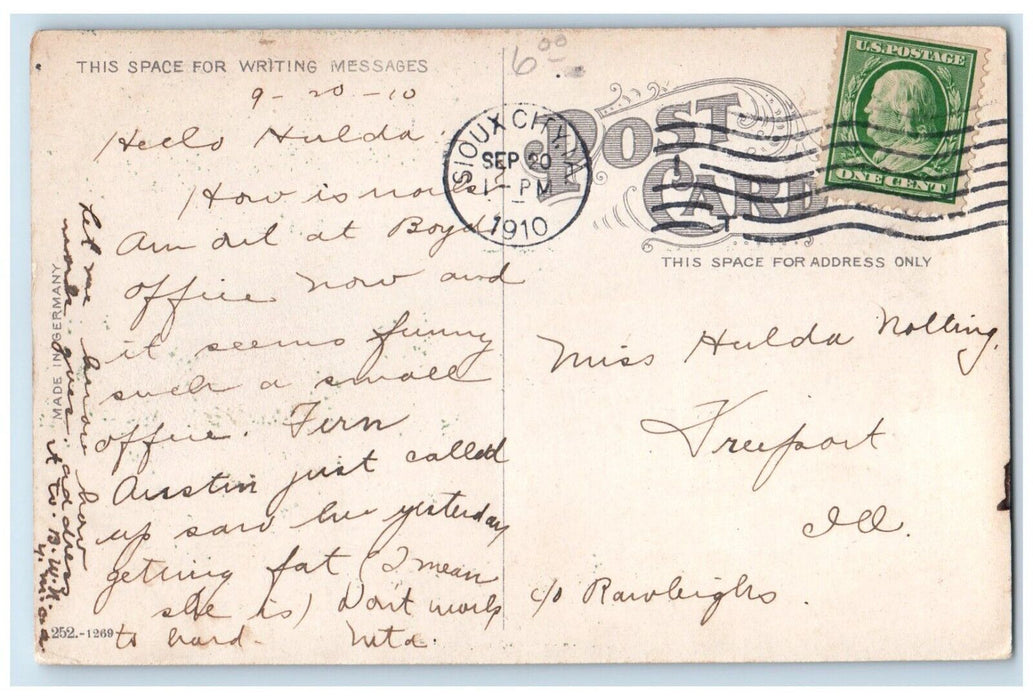 THIS SPACE FOR WRITING MESSAGES
9-20-10
Hello Hulda
How is
Am at Boyds
office now and
it seems funny
such a small
office. Fern
Austin just called
up saw her yesterday
getting fat (I mean
she is) Dont work
to hard.
Let me know how
work goes. address
it to.
MADE IN GERMANY
252.-1269
6 00
POST CARD
SIOUX CITY, IA
SEP 20
1 - PM
1910
U.S. POSTAGE
ONE CENT
THIS SPACE FOR ADDRESS ONLY
Miss Hulda Nolting,
Freeport
Ill.
c/o Rawleighs.